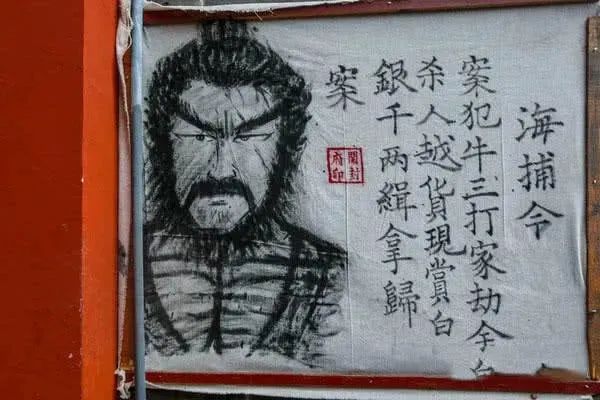 海捕令
案犯牛三打家劫余
杀人越貨現賞白
銀千两緝拿歸
案
開封
府印